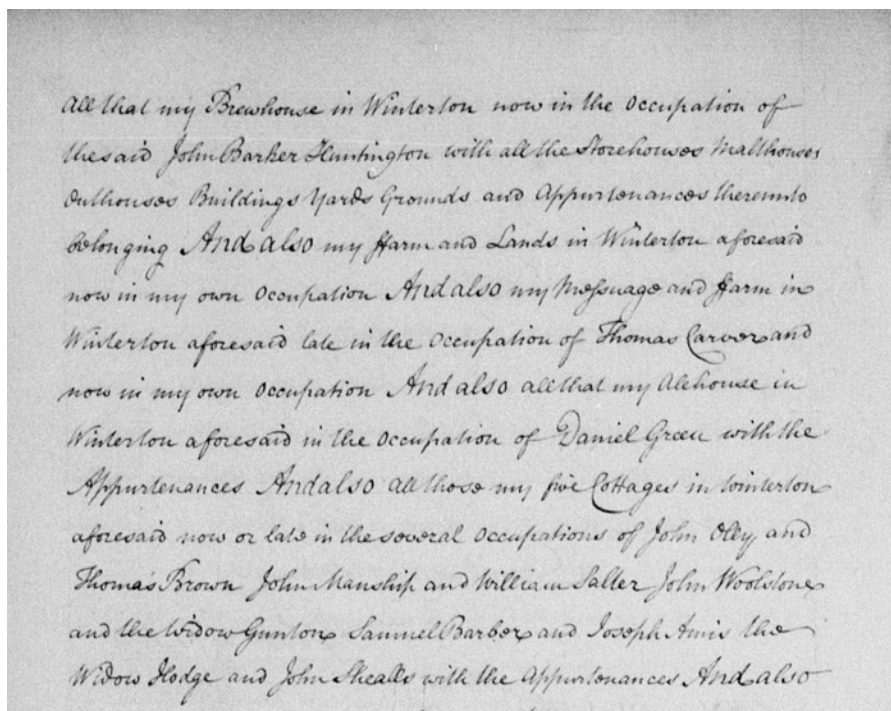 All that my Brewhouse in Winterton now in the Occupation of
the said John Barker Huntington with all the Storehouses Malthouses
Outhouses Buildings Yards Grounds and Appurtenances thereunto
belonging And also my ffarm and Lands in Winterton aforesaid
now in my own Occupation And also my Messuage and ffarm in
Winterton aforesaid late in the Occupation of Thomas Carver and
now in my own Occupation And also all that my Alehouse in
Winterton aforesaid in the Occupation of Daniel Green with the
Appurtenances And also all those my five Cottages in Winterton
aforesaid now or late in the several Occupations of John Olley and
Thomas Brown John Manship and William Salter John Woolstone
and the Widow Gunton Samuel Barber and Joseph Amis the
Widow Hodge and John Shealls with the Appurtenances And also